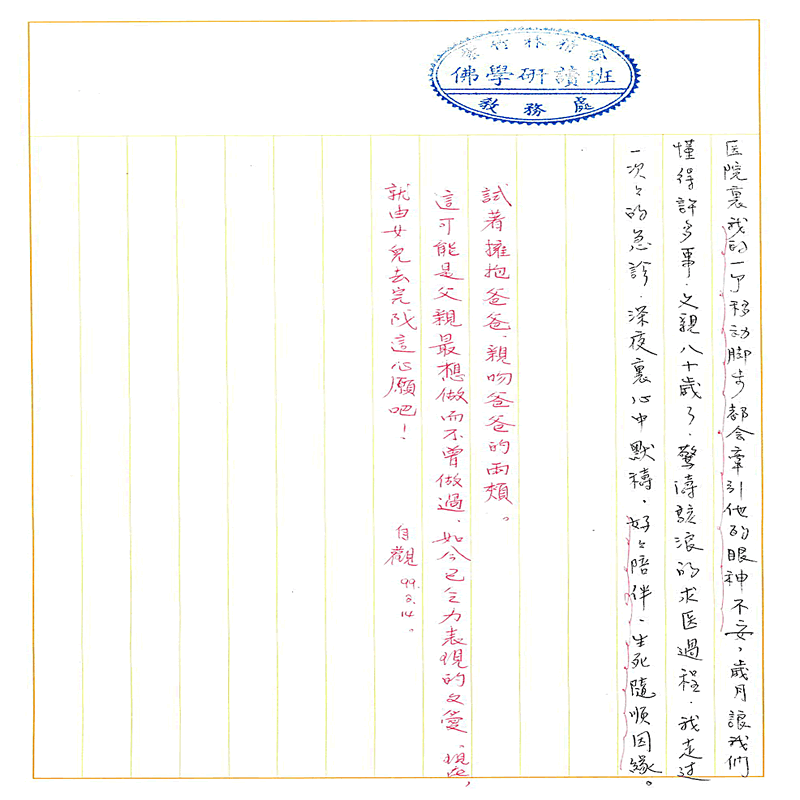 紫竹林精舍
佛學研讀班
教務處
医院裏我的一个移动脚步都会牽引他的眼神不安，歲月讓我們
懂得許多事．父親八十歲了．驚濤駭浪的求医過程．我走过
一次々的急診．深夜裏心中默禱．好々陪伴．生死隨順因緣。
試著擁抱爸爸．親吻爸爸的兩頰。
這可能是父親最想做而不曾做過．如今已乏力表現的父愛，現在，
就由女兒去完成這心願吧！
自觀 99.3.14。